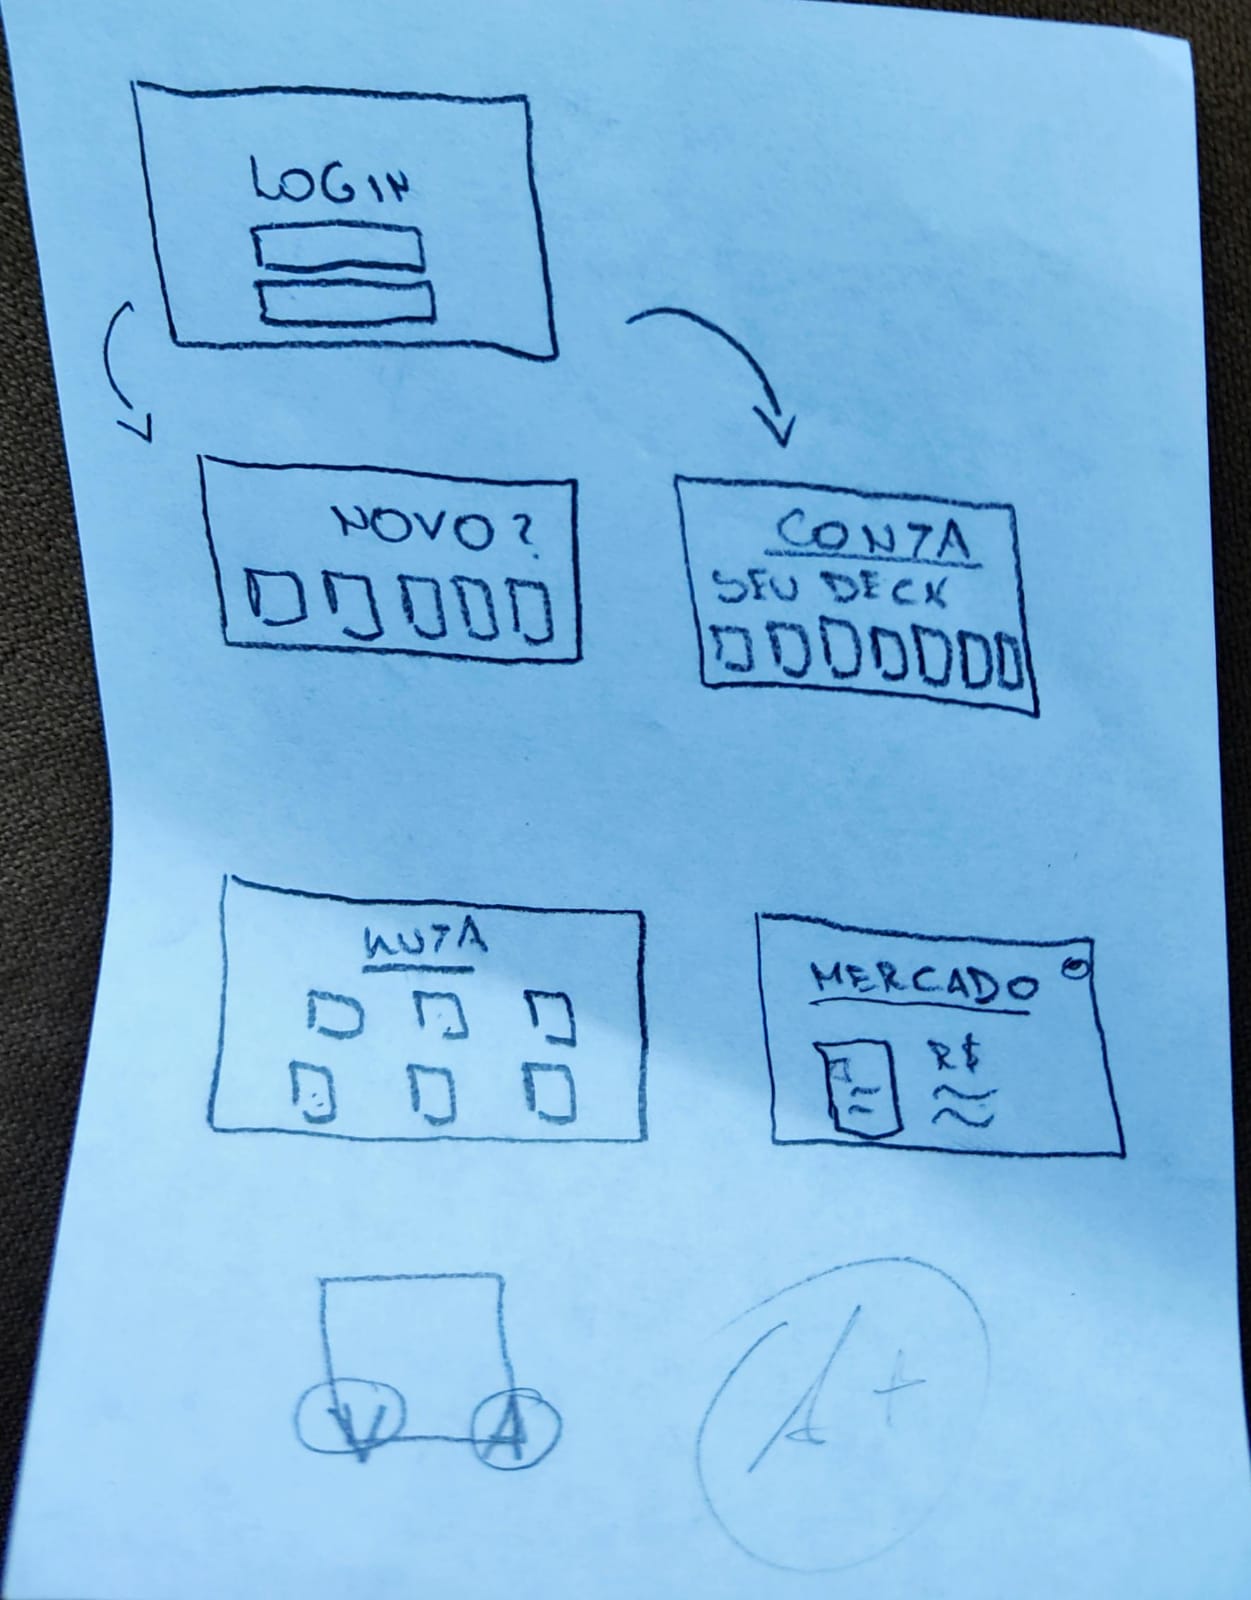 LOGIN
NOVO?
CONTA
SEU DECK
LUTA
MERCADO
R$
V A
A+